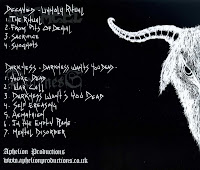 Decayed - Unholy Ritual
1. The Ritual
2. From Pits Of Denial
3. Sacrifice
4. Shoguots
Darkness - Darkness Wants You Dead
1. You're Dead
2. War Call
3. Darkness Want's You Dead
4. Self Erasing
5.
6. In The Empty
7. Mental Disorder
Aphelion Productions
www.aphelionproductions.co.uk